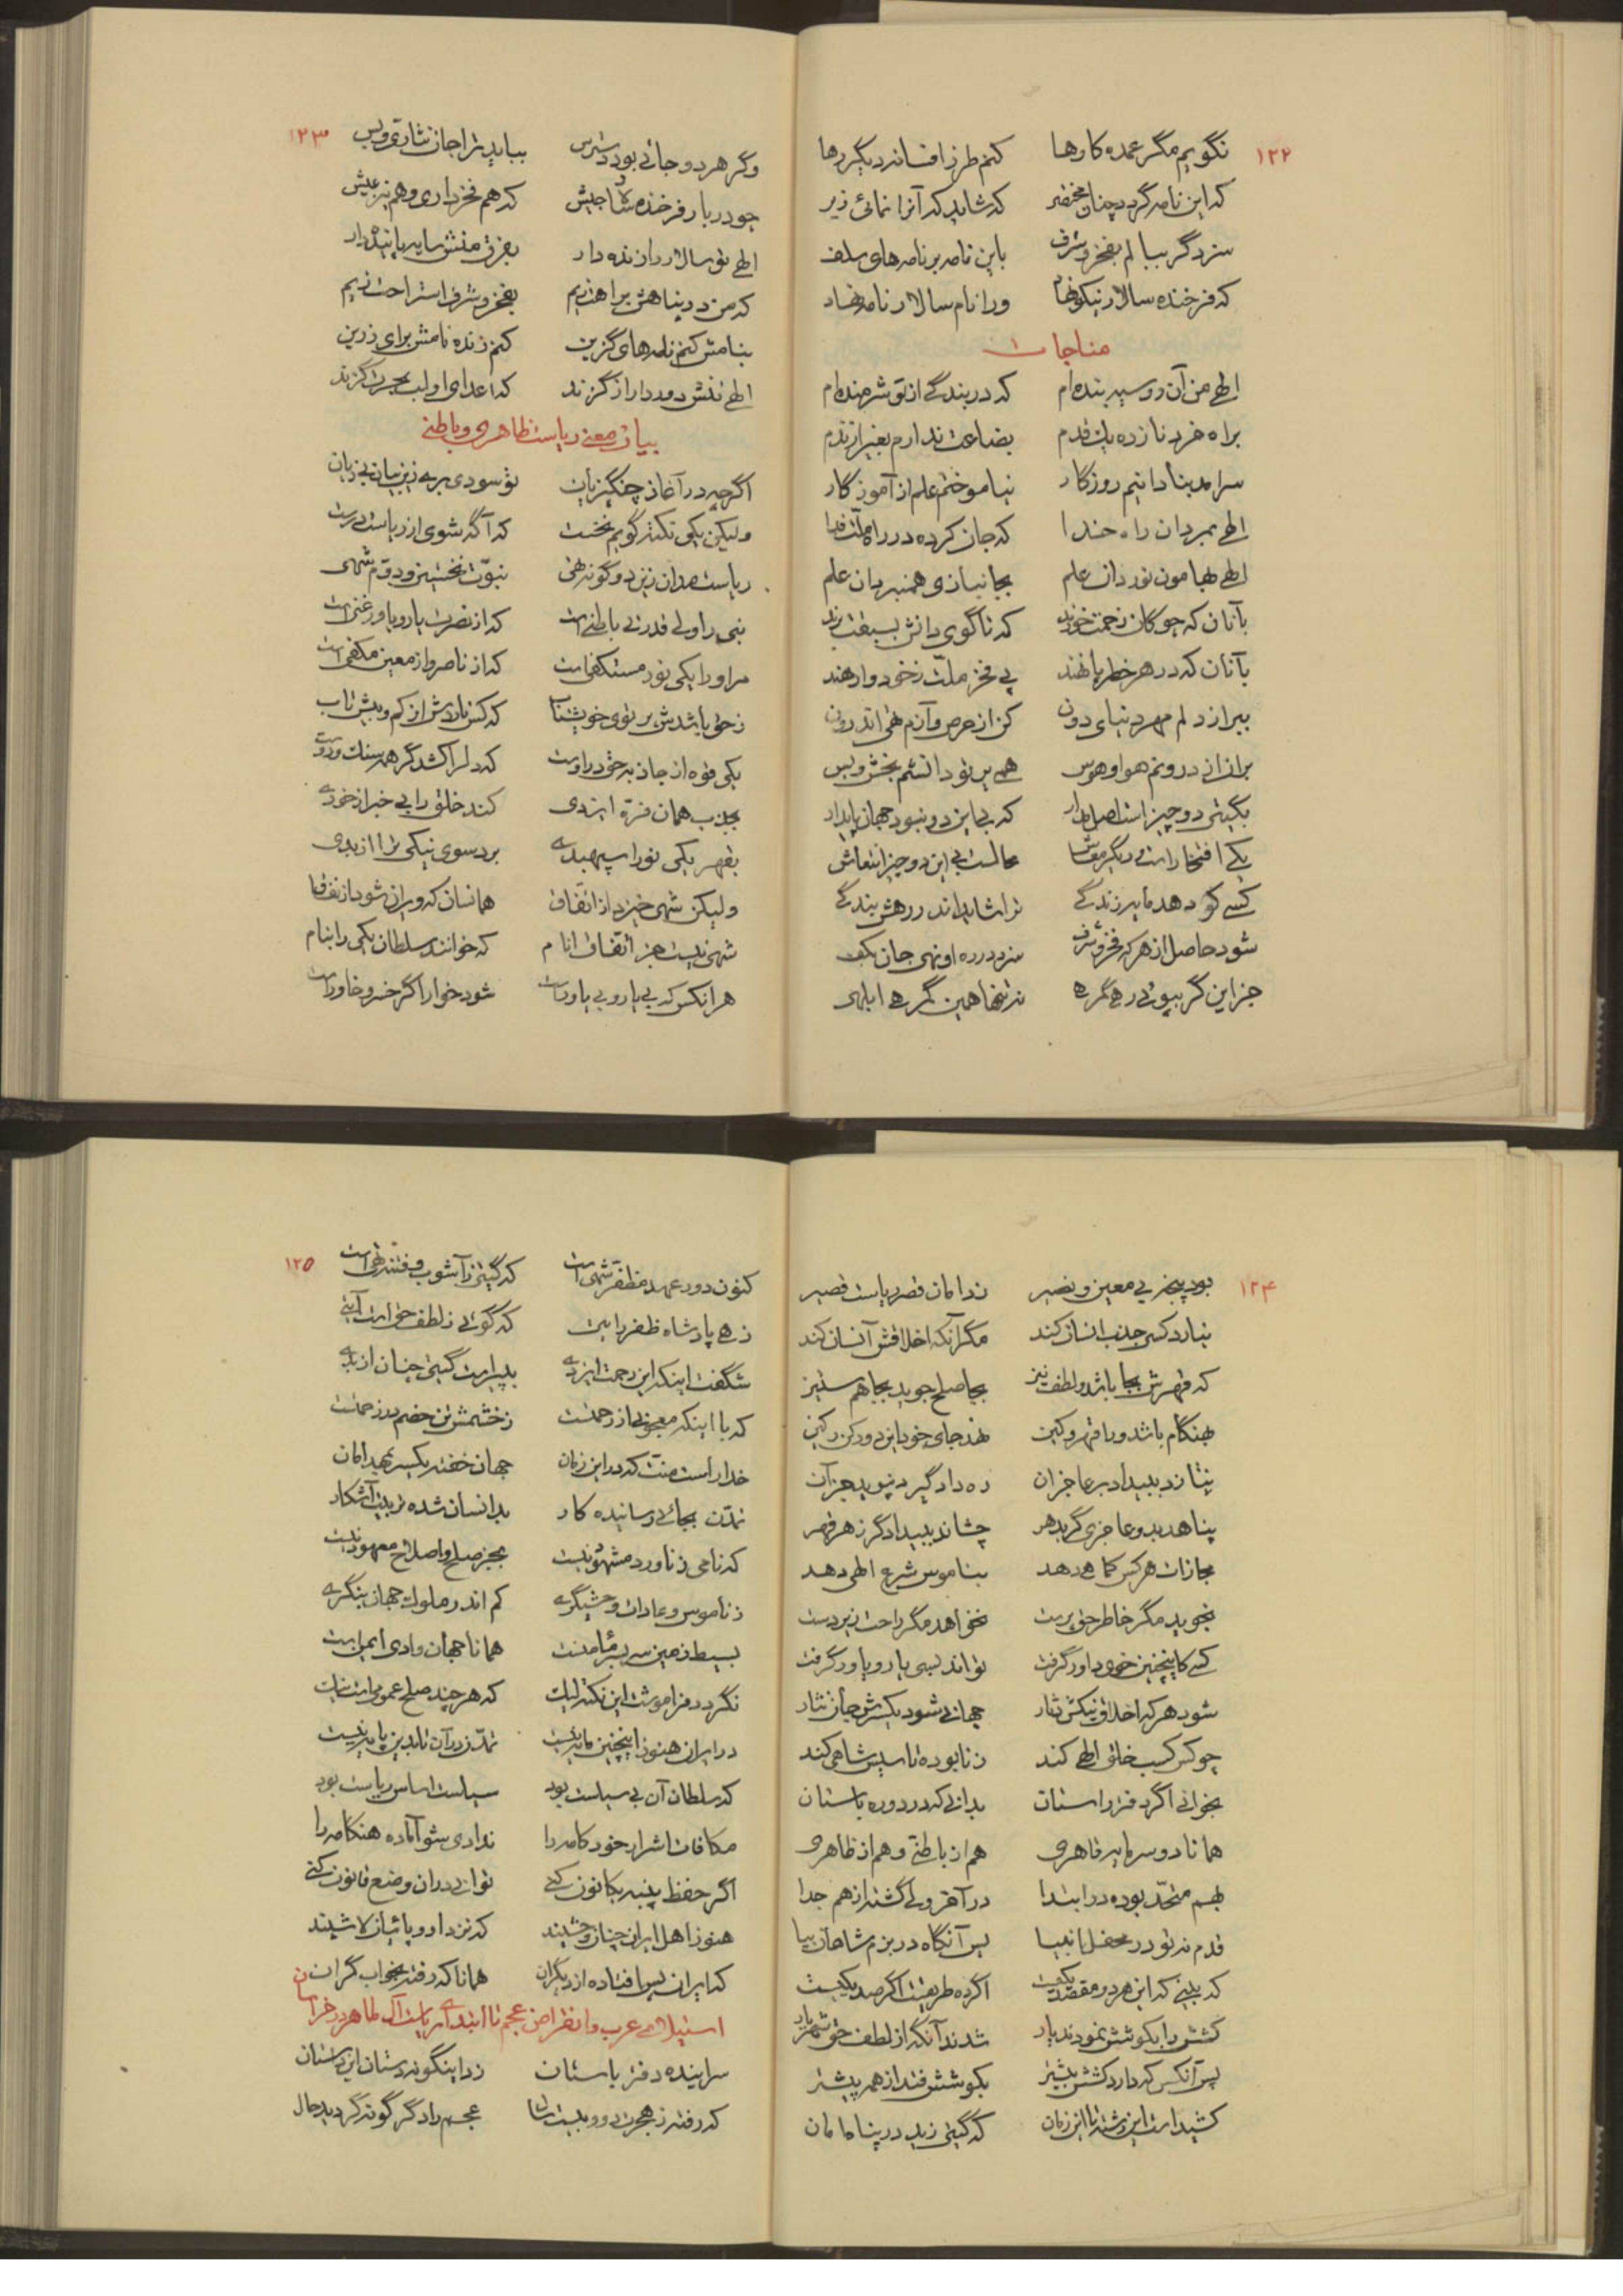 ۱۲۲
نگویم مگر عمده کارها کنم طرز افسانه دیگر رها
که این نامه گردد چنان مختصر که شاید که آنرا نمائی زبر
سزد گر ببالم بفخر و شرف باین نامه بر نامه‌های سلف
که فرخنده سالار نیکو نهاد ورا نام سالار نامه نهاد
مناجات
الهی من آن رو سیه بنده‌ام که در بندگی از تو شرمنده‌ام
براه خرد نازده یک قدم بضاعت ندارم بغیر از ندم
سر آمد بنادانیم روزگار نیاموختم علم از آموزگار
الهی بمردان راه خدا که جان کرده در راه ملت فدا
الهی بهامون نوردان علم بجانبازی همنبردان علم
بآنان که چوگان زحمت خورند که تا گوی دانش بسبقت برند
بآنان که در هر خطر پا نهند پی فخر ملت ز خود وارهند
ببر از دلم مهر دنیای دون کن از حرص و آزم تهی اندرون
بران از درونم هوا و هوس همی پرتو دانشم بخش و بس
بگیتی دو چیز است اصل مدار که بی این دو نبود جهان پایدار
یکی افتخار است و دیگر معاش محالست بی این دو چیز انتعاش
کسی کو دهد مایه زندگی ترا شاید اندر رهش بندگی
شود حاصل از هر که فخر و شرف سزد در ره او نهی جان بکف
جز این گر بپوئی رهی گمرهی نه تنها همین گمرهی ابلهی
۱۲۳
وگر هر دو جائی بود دسترس بباید ترا جان نثاری و بس
چو دربار فرخنده سالار جیش که هم فخر داری و هم نیز عیش
الهی تو سالار را زنده دار بفرق منش سایه پاینده دار
که من در پناهش براحت زیم بفخر و شرف استراحت زیم
بنامش کنم نامه‌های گزین کنم زنده نامش برای رزین
الهی تنش دور دار از گزند که اعدای او لب بحسرت گزند
بیان معنی ریاست ظاهری و باطنی
اگرچه در آغاز چنگیزیان تو سودی بری زین بیان بی‌زیان
ولیکن یکی نکته گویم نخست که آگه شوی از ریاست درست
ریاست مدان زین دو گونه تهی نبوت نخستین و دوم شهی
نبی را ولی قدرتی باطنی است که از نصرت یار و یاور غنی است
مر او را یکی نور مستکفی است که از ناصر و از معین مکفی است
ز حق باشدش پرتوی خویشتاب که کس ناردش از کم و بیش تاب
یکی قوه از جاذبه حق در اوست که دلرا کشد گر همه سنگ و روست
بجذب همان فره ایزدی کند خلق را بی خبر از خودی
بقهر یکی نور اسپهبدی برد سوی نیکی ترا از بدی
ولیکن شهی خیزد از اتفاق همانسان که ویران شود از نفاق
شهی نیست جز اتفاق انام که خوانند سلطان یکی را بنام
هر آنکس که بی یار و بی یاور است شود خوار اگر خسرو خاور است
۱۲۴
بود پنجه بی معین و نصیر ندامان قصر ریاست قصیر
نیارد کسی جذب انسان کند مگر آنکه اخلاقش آنسان کند
که قهرش بجا باشد و لطف نیز بجا صلح جوید بجا هم ستیز
بهنگام باشد ورا قهر و کین نهد جای خود این دو رکن رکین
نتازد ببیداد بر عاجزان ره دادگیرد نپوید جز آن
پناهد بدو عاجزی گر بدهر چشاند ببیدادگر زهر قهر
مجازات هر کس کماهی دهد بناموس شرع الهی دهد
نجوید مگر خاطر حق پرست نخواهد مگر راحت زیردست
کسی کاینچنین خوی داور گرفت تواند بسی یار و یاور گرفت
شود هر که اخلاق نیکش شعار جهانی شود یکسرش جان نثار
چو کس کسب خلق الهی کند ز نابوده تاسیس شاهی کند
بخوانی اگر دفتر راستان بدانی که در دوره باستان
همانا دو سرمایه قاهری هم از باطنی و هم از ظاهری
بهم متحد بوده در ابتدا در آخر ولی گشته از هم جدا
قدم نه تو در محفل انبیا پس آنگاه در بزم شاهان بیا
که بینی که این هر دو مقصد یکیست اگر ره طریقت اگر صد یکیست
کشش را بکوشش نمودند یار شدند آنگه از لطف حق شهریار
پس آنکس که دارد کشش بیشتر بکوشش فتد از همه پیشتر
کشیده است این رشته تا این زمان که گیتی زید در پناه امان
۱۲۵
کنون دور عهد مظفر شهی است که گیتی ز آشوب و فتنه تهی است
زهی پادشاه ظفر رایتی که گوئی ز لطف حق است آیتی
شگفت اینکه این رحمت ایزدی بپیراست گیتی چنان از بدی
که با اینکه معجونی از رحمتست ز خشمش تن خصم در زحمتست
خدا راست منت که در این زمان جهان خفته یکسر بمهد امان
تمدن بجائی رسانیده کار بد انسان شده تربیت آشکار
که نامی ز ناورد مشهود نیست بجز صلح و اصلاح معهود نیست
ز ناموس و عادات وحشیگری کم اندر ملوک جهان بنگری
بسیط زمین سر بسر مأمنست همانا جهان وادی ایمن است
نگردد فراموشت این نکته لیک که هر چند صلح عمومی است نیک
در ایران هنوز اینچنین مایه نیست تمدن در آن تا بدین پایه نیست
که سلطان آن بی سیاست بود سیاست اساس ریاست بود
مکافات اشرار خودکامه را نداری شو آماده هنگامه را
اگر حفظ پنبه بکانون کنی توانی در آن وضع قانون کنی
هنوز اهل ایران چنان وحشیند که نزد اروپائیان لا شیئند
که ایران پس افتاده از دیگران همانا که رفته بخواب گران
استیلای عرب و انقراض عجم تا ابتدای ریاست آل طاهر در خراسان
سراینده دفتر باستان زد اینگونه دستان این داستان
که رفته ز هجرت دو و بیست سال عجم را دگرگونه گردید حال